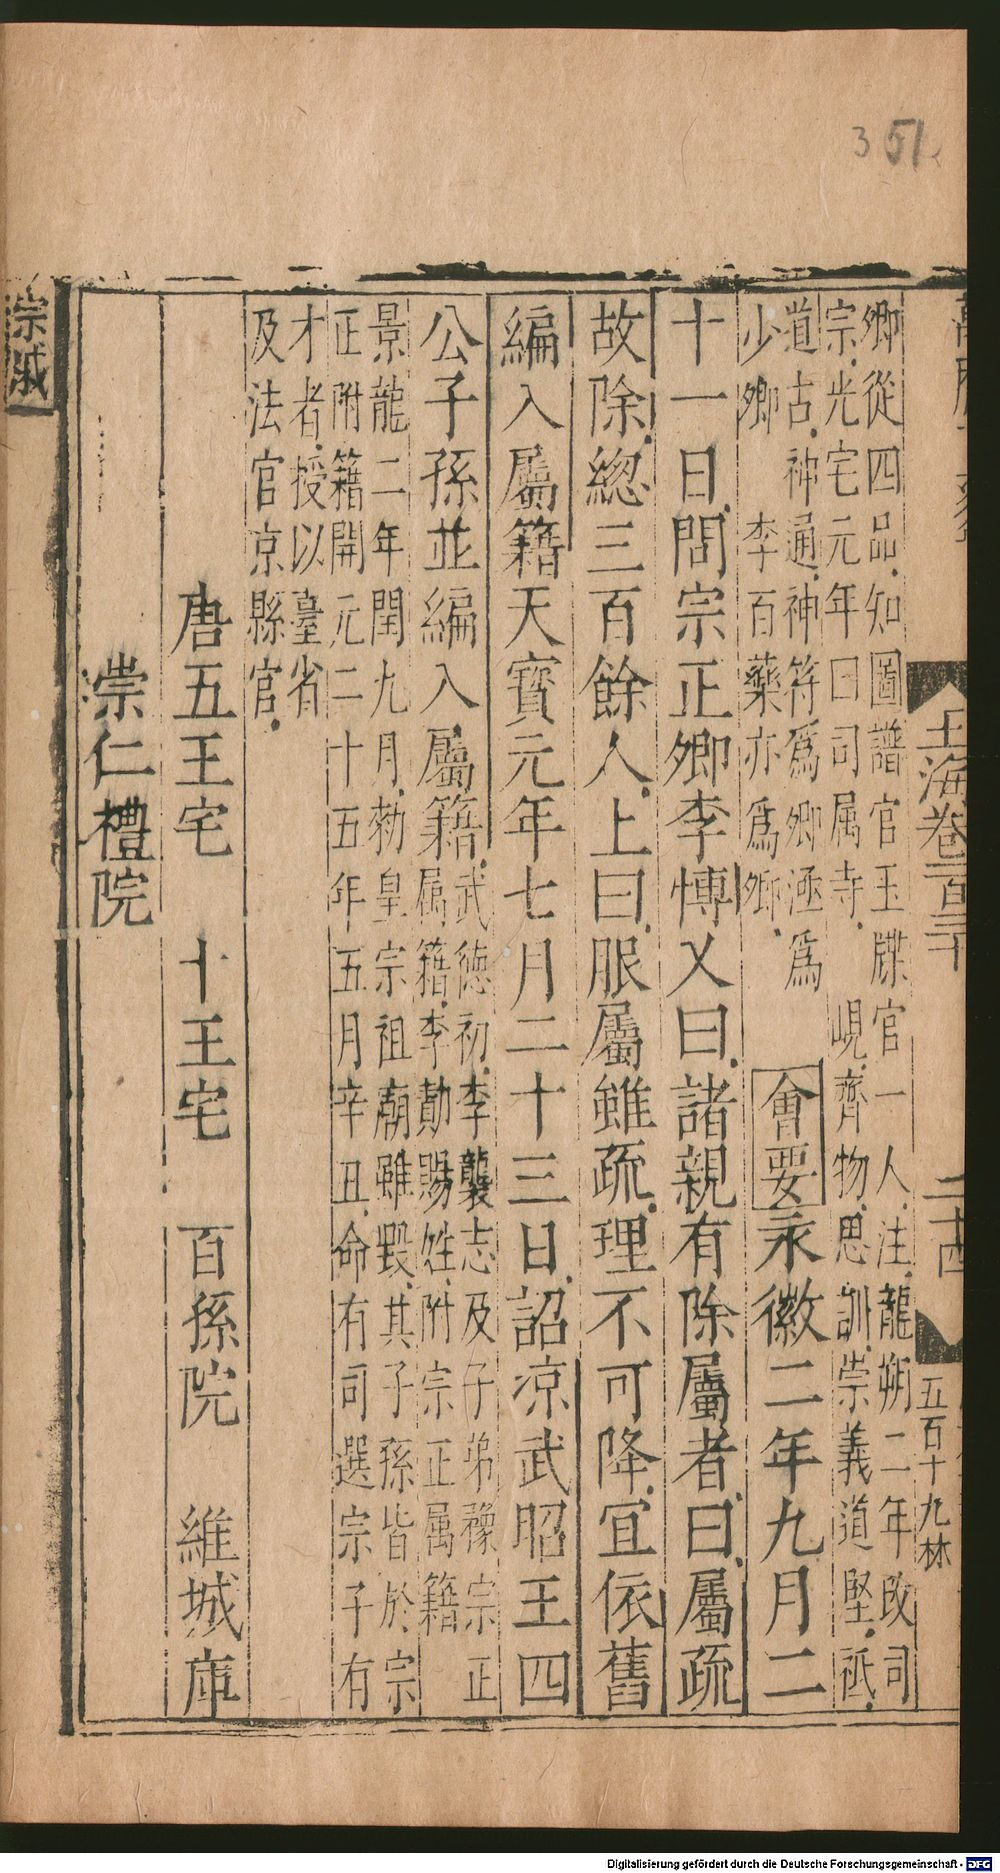 351
玉海卷一百三十
二十四
五百十九林
卿從四品知圖譜官玉牒官一人注龍朔二年改司
宗光宅元年曰司属寺 峴齊物思訓崇義道堅祗
道古神通神符爲卿涵爲
少卿 李百藥亦爲卿
會要永徽二年九月二
十一日問宗正卿李慱乂曰諸親有除屬者曰屬疏
故除總三百餘人上曰服屬雖疏理不可降宜依舊
編入屬籍天寶元年七月二十三日詔凉武昭王四
公子孫並編入屬籍
武徳初李襲志及子弟豫宗正
属籍李勣賜姓附宗正属籍
景龍二年閏九月勑皇宗祖廟雖毀其子孫皆於宗
正附籍開元二十五年五月辛丑命有司選宗子有
才者授以臺省
及法官京縣官
唐五王宅 十王宅 百孫院 維城庫
崇仁禮院
宗戚
Digitalisierung gefördert durch die Deutsche Forschungsgemeinschaft - DFG